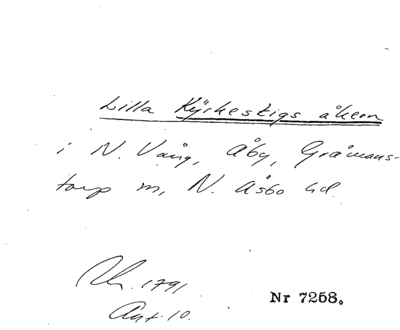 Lilla Kyrkestigs åkern
i N. Vång, Åby, Gråmans-
torp m, N. Åsbo hd.
Rk. 1791
Akt. 10.
Nr 7258.